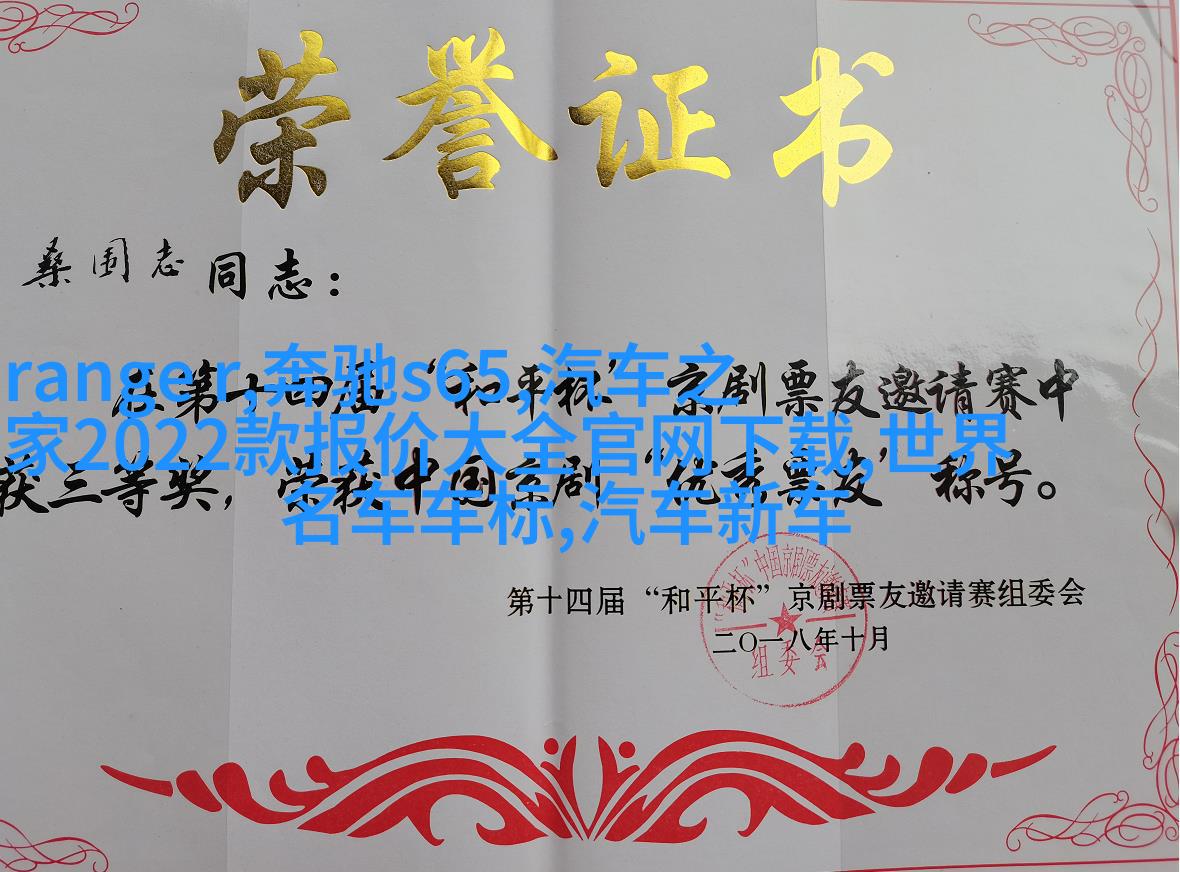 荣誉证书
桑围志同志：
在第十四届“和平杯”京剧票友邀请赛中
获三等奖，荣获中国京剧“优秀票友”称号。
ranger,奔驰s65,汽车之
家2022款报价大全官网下载,世界
名车车标,汽车新车
第十四届“和平杯”京剧票友邀请赛组委会
二〇一八年十月
组委会